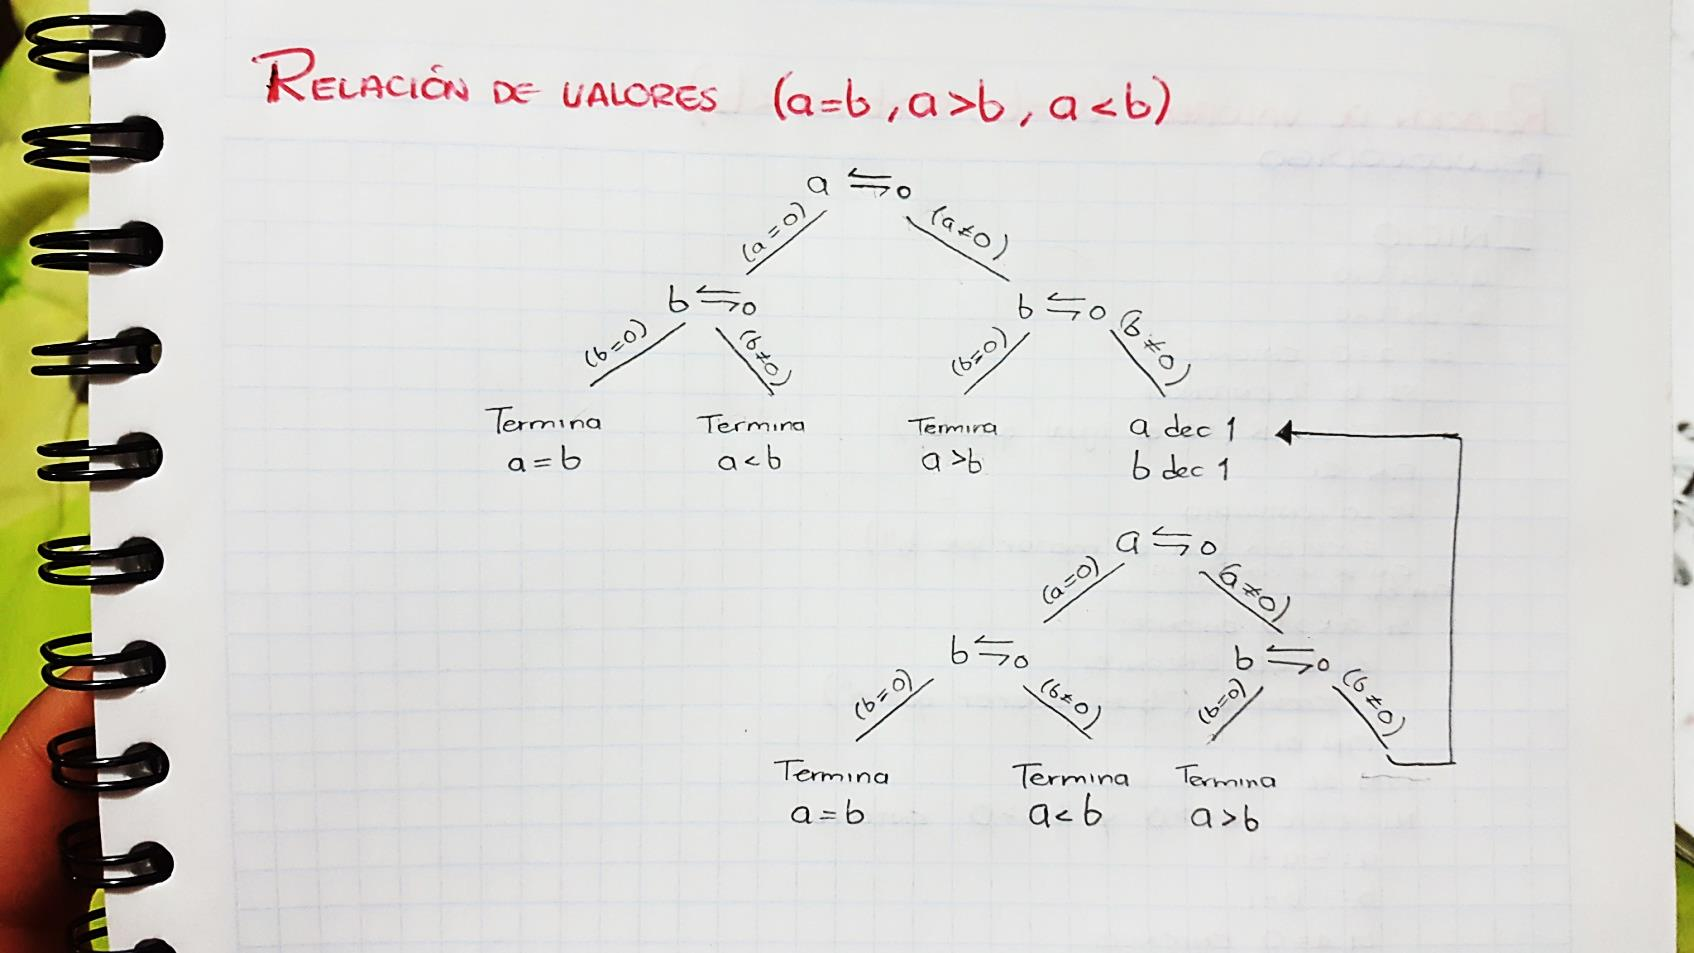 RELACIÓN DE VALORES (a=b, a>b, a<b)
a ⇆ 0
(a=0) (a≠0)
b ⇆ 0 b ⇆ 0
(b=0) (b≠0) (b=0) (b≠0)
Termina Termina Termina a dec 1
a=b a<b a>b b dec 1
a ⇆ 0
(a=0) (a≠0)
b ⇆ 0 b ⇆ 0
(b=0) (b≠0) (b=0) (b≠0)
Termina Termina Termina
a=b a<b a>b